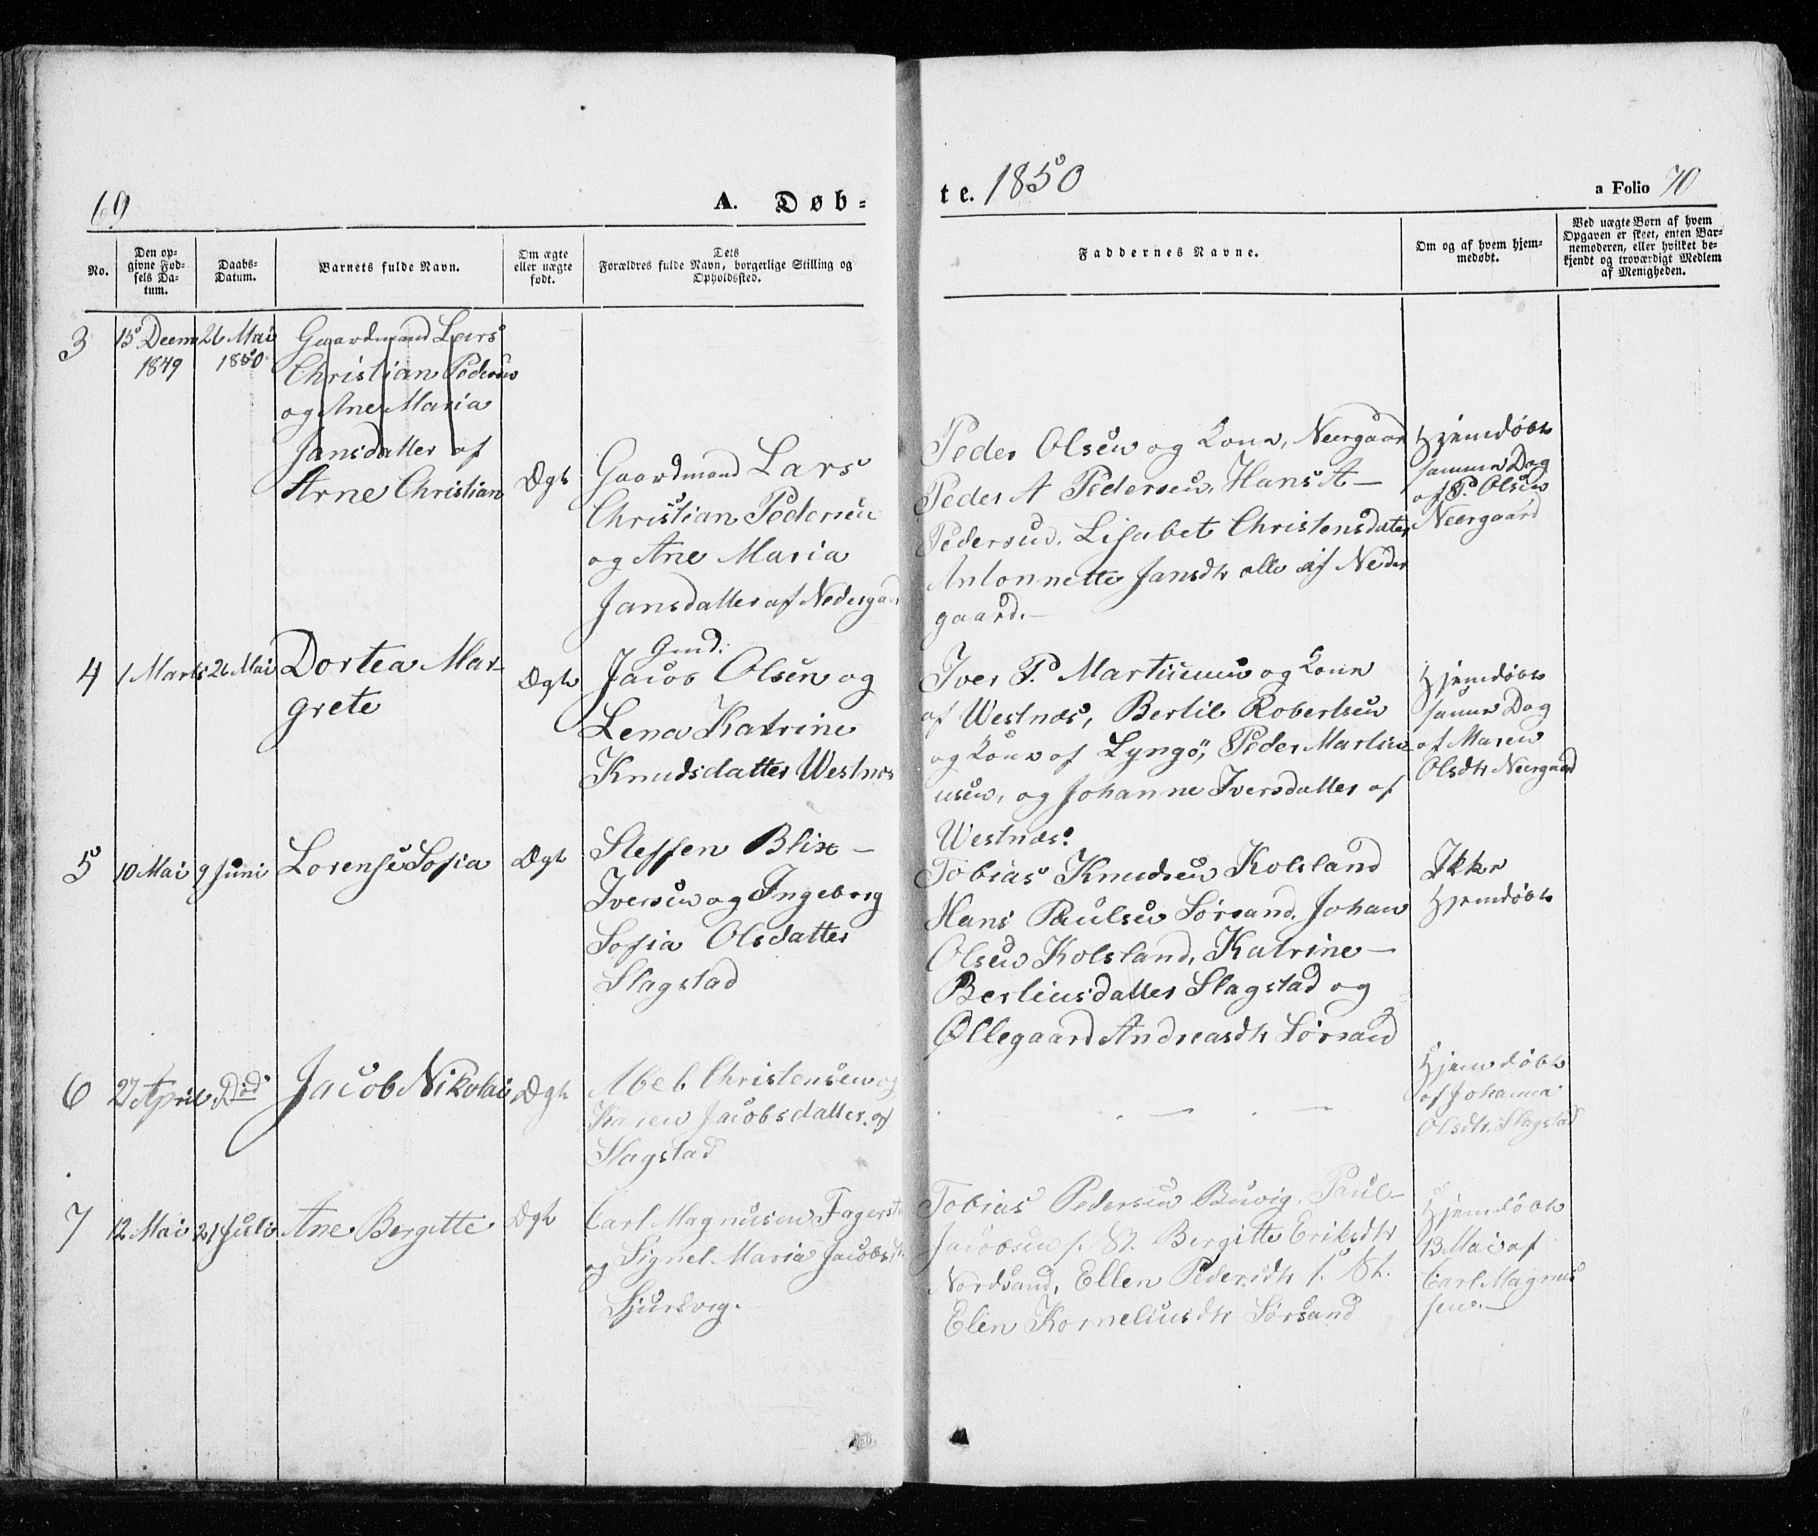 69
A. Døb-
te. 1850
a Folio 70
No.
Den op-
givne Fød-
sels Da-
tum.
Daabs-
Datum.
Barnets fulde Navn.
Om ægte
eller uægte
født.
Dets
Forældres fulde Navn, borgerlige Stilling og
Opholdssted.
Faddernes Navne.
Om og af hvem hjem-
medøbt.
Ved uægte Børn af hvem
Opgaven er skeet, enten Bar-
nemoderen, eller hvilket be-
kjendt og troværdigt Medlem
af Menigheden.
3
15 Decem
1849
26 Mai
1850
Gaardmand Lars
Christian Pedersen
og Ane Maria
Jansdatter af
Arne Christian
Ægte
Gaardmand Lars
Christian Pedersen
og Ane Maria
Jansdatter af Nedergaar
Peder Olsen og Kone, Neergaar
Peder A Pedersen, Hans A-
Pedersen. Lisabet Christensdatter
Antonnette Jansdtr alle af Neder
gaard.-
Hjemdøbt
samme Dag
af P. Olsen
Neergaard
4
1 Marts
26 Mai
Dortea Mar-
grete
Ægte
Gmd:
Jacob Olsen og
Lena Katrine
Knudsdatter Westnes
Iver P. Martinusen og Kone
af Westnæs, Bertil Robertsen
og Kone af Lyngø, Peder Martin
usen, og Johanne Iversdatter af
Westnæs.
Hjemdøbt
samme Dag
af Maren
Olsdtr Neergaard
5
10 Mai
9 Juni
Lorense Sofia
Ægte
Steffen Blix-
Iversen og Ingeborg
Sofia Olsdatter
Slagstad
Tobias Knudsen Kolsland
Hans Paulsen Sørsand. Johan
Olsen Kolsland, Katrine-
Bertinusdatter Slagstad og
Øllegaard Andreasdtr Sørsand
Ikke
Hjemdøbt
6
27 April
Død
Jacob Nikolai
Ægte
Abel Christensen og
Karen Jacobsdatter af
Slagstad
Hjemdøbt
af Johanna
Olsdtr. Slagstad
7
12 Mai
21 Juli
Ane Bergitte
Ægte
Carl Magnusen Fagerst
og Signel Maria Jacobsdtr
Tobias Pedersen Buvig. Paul-
Jacobsen f. St. Bergitte Eriksdtr
Nordsand, Ellen Pedersdtr f. St.
Elen Korneliusdtr Sørsand
Hjemdøbt
13 Mai af
Carl Magnus
sen.-